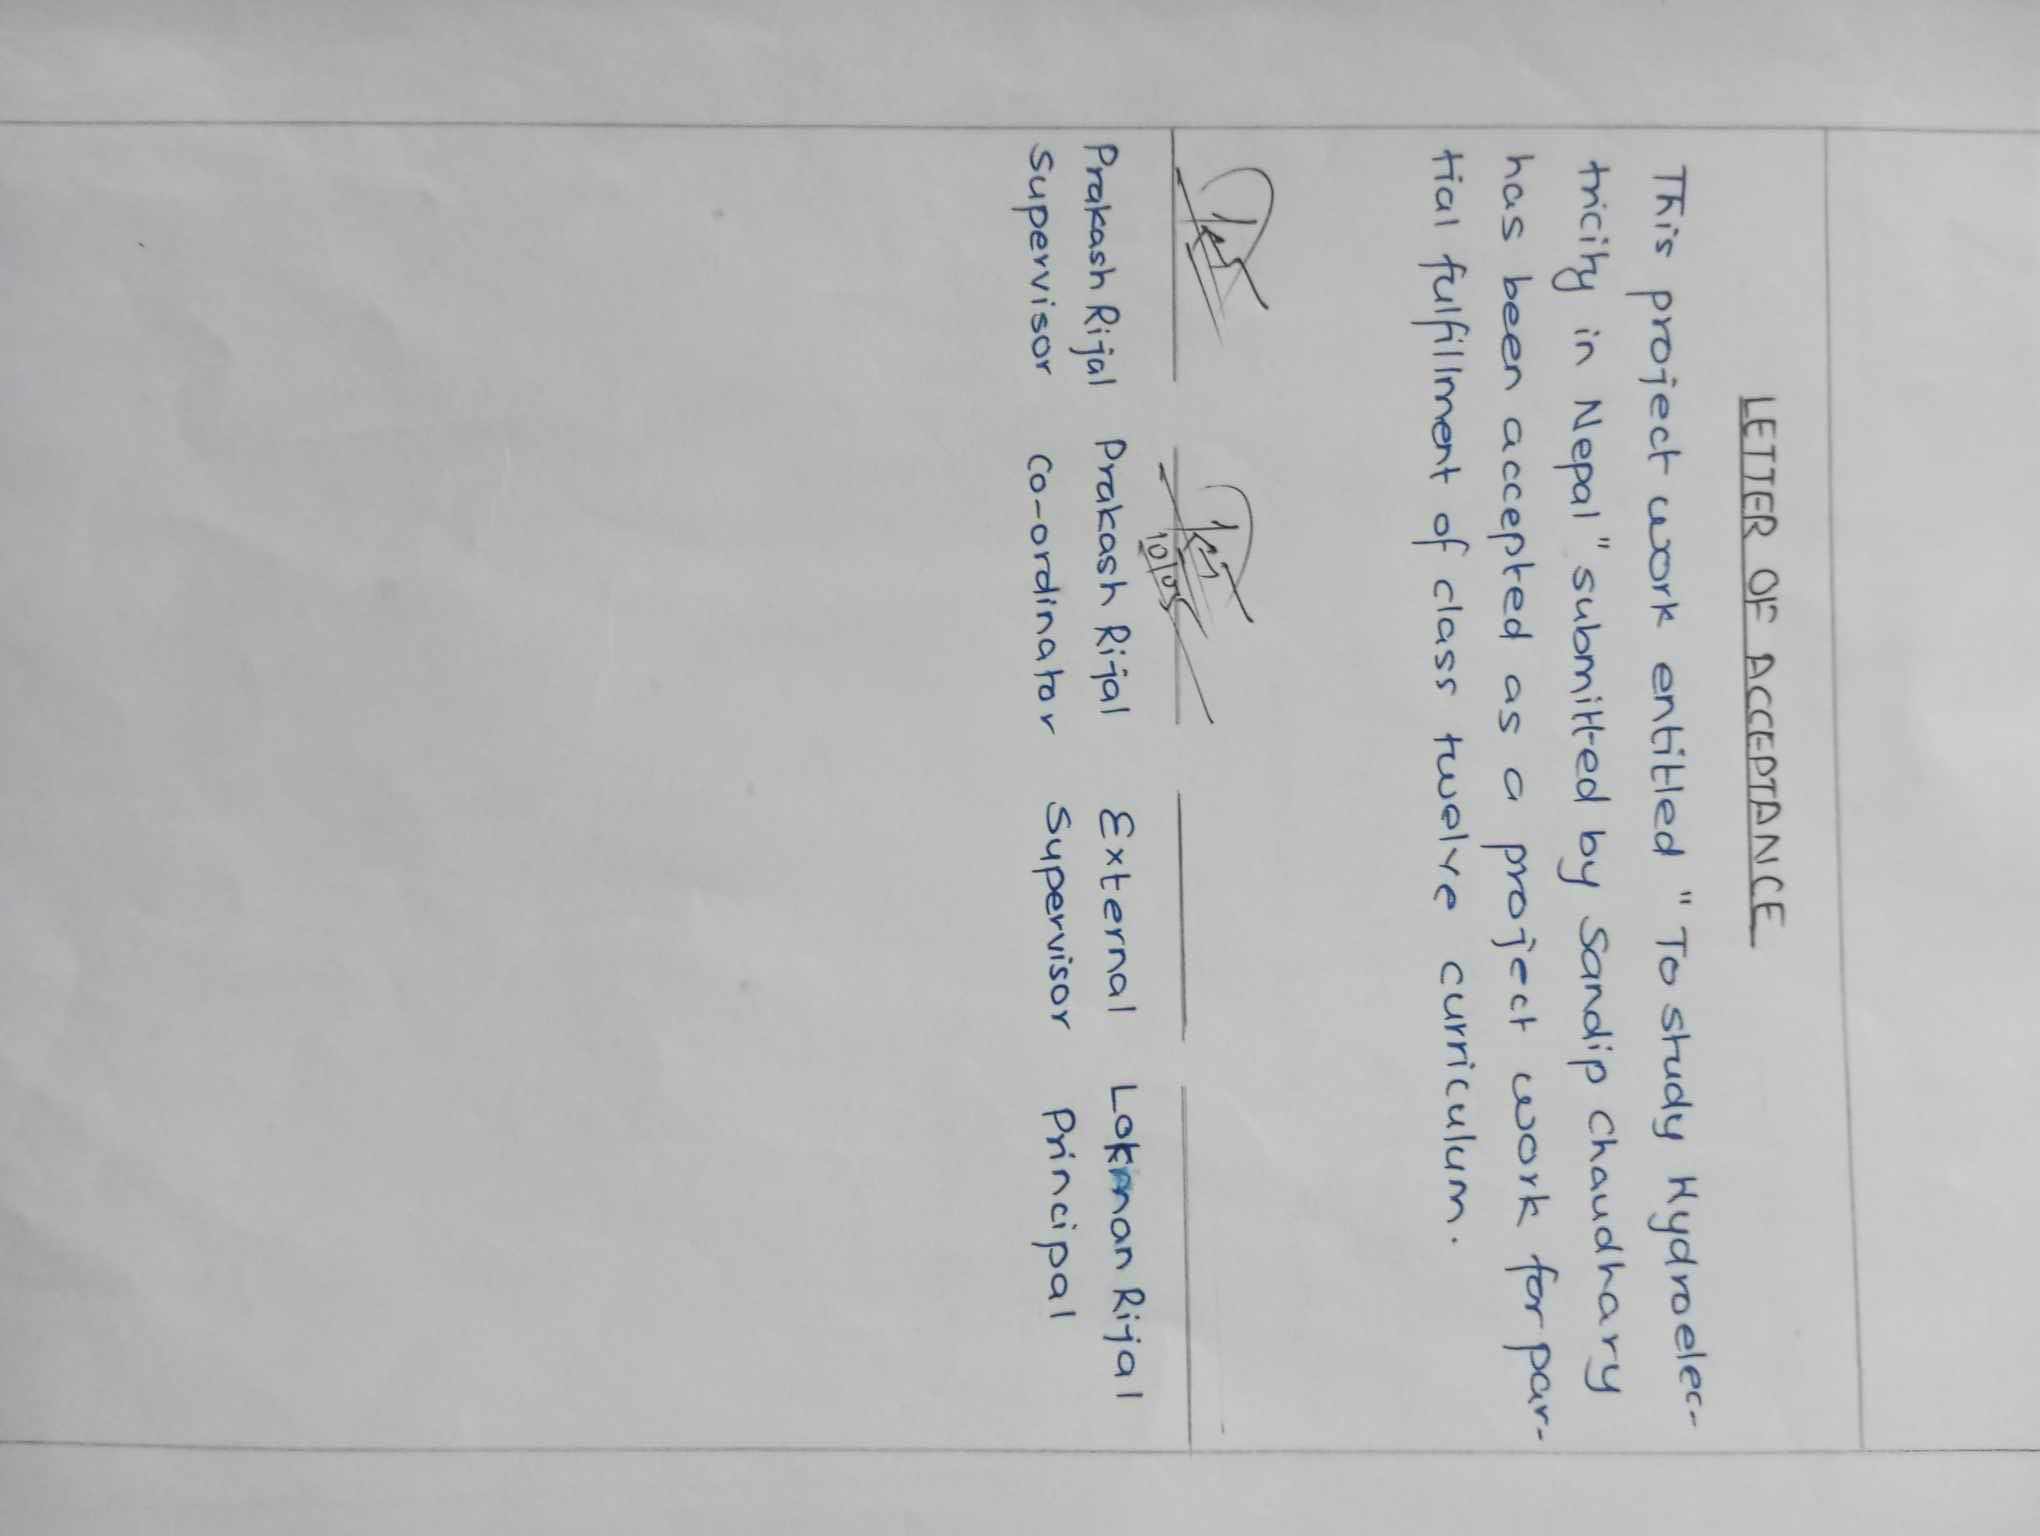 LETTER OF ACCEPTANCE
This project work entitled "To study Hydroelec-
tricity in Nepal" submitted by Sandip Chaudhary
has been accepted as a project work for par-
tial fulfillment of class twelve curriculum.
Prakash Rijal Prakash Rijal External Lokman Rijal
Supervisor Co-ordinator Supervisor Principal